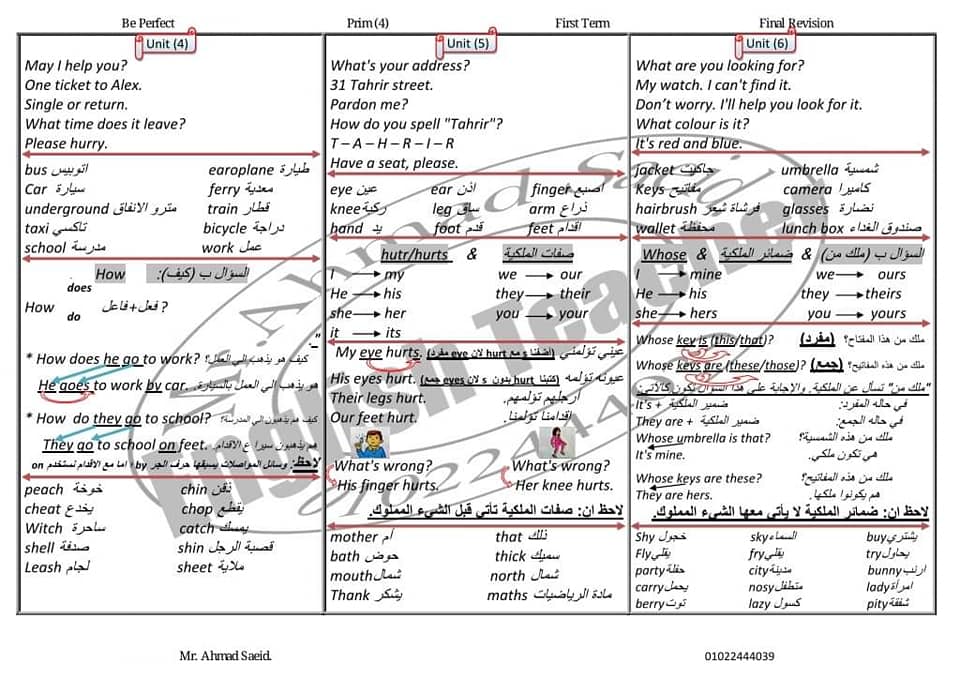 Be Perfect Prim (4) First Term Final Revision
Unit (4)
May I help you?
One ticket to Alex.
Single or return.
What time does it leave?
Please hurry.
bus اتوبيس earoplane طيارة
Car سيارة ferry معدية
underground مترو الانفاق train قطار
taxi تاكسي bicycle دراجة
school مدرسة work عمل
How السؤال ب (كيف):
does
How فعل+فاعل ?
do
* How does he go to work? كيف هو يذهب الي العمل؟
He goes to work by car. هو يذهب الي العمل بالسيارة.
* How do they go to school? كيف هم يذهبون الي المدرسة؟
They go to school on feet. هم يذهبون سيرا ع الاقدام.
لاحظ: وسائل المواصلات يسبقها حرف الجر by + اما مع الاقدام نستخدم on
peach خوخة chin ذقن
cheat يخدع chop يقطع
Witch ساحرة catch يمسك
shell صدفة shin قصبة الرجل
Leash لجام sheet ملاية
Unit (5)
What's your address?
31 Tahrir street.
Pardon me?
How do you spell "Tahrir"?
T – A – H – R – I – R
Have a seat, please.
eye عين ear اذن finger اصبع
knee ركبة leg ساق arm ذراع
hand يد foot قدم feet اقدام
hutr/hurts & صفات الملكية
I my we our
He his they their
she her you your
it its
My eye hurts. (أضفنا s مع hurt لان eye مفرد) عيني تؤلمني
His eyes hurt. (كتبنا hurt بدون s لان eyes جمع) عيونه تؤلمه
Their legs hurt. أرجلهم تؤلمهم.
Our feet hurt. اقدامنا تؤلمنا.
What's wrong? What's wrong?
His finger hurts. Her knee hurts.
لاحظ ان: صفات الملكية تأتي قبل الشيء المملوك.
mother أم that ذلك
bath حوض thick سميك
mouth شمال north شمال
Thank يشكر maths مادة الرياضيات
Unit (6)
What are you looking for?
My watch. I can't find it.
Don't worry. I'll help you look for it.
What colour is it?
It's red and blue.
jacket جاكيت umbrella شمسية
Keys مفاتيح camera كاميرا
hairbrush فرشاة شعر glasses نضارة
wallet محفظة lunch box صندوق الغداء
Whose & ضمائر الملكية & السؤال ب (ملك من)
I mine we ours
He his they theirs
she hers you yours
Whose key is (this/that)? (مفرد) ملك من هذا المفتاح؟
Whose keys are (these/those)? (جمع) ملك من هذه المفاتيح؟
"ملك من" تسأل عن الملكية. والاجابة على هذا السؤال تكون كالاتي:
It's + ضمير الملكية في حاله المفرد:
They are + ضمير الملكية في حاله الجمع:
Whose umbrella is that? ملك من هذه الشمسية؟
It's mine. هي تكون ملكي.
Whose keys are these? ملك من هذه المفاتيح؟
They are hers. هم يكونوا ملكها.
لاحظ ان: ضمائر الملكية لا يأتي معها الشيء المملوك.
Shy خجول sky السماء buy يشتري
Fly يقلي fry يقلي try يحاول
party حفلة city مدينة bunny ارنب
carry يحمل nosy متطفل lady امرأة
berry توت lazy كسول pity شفقة
Mr. Ahmad Saeid. 01022444039